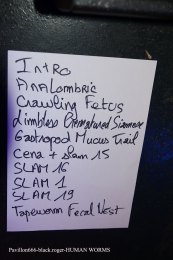 Intro
Analombric
Crawling Fetus
Limbless Prematured Siamese
Gastropod Mucus Trail
Cena + Slam 15
SLAM 16
SLAM 1
SLAM 19
Tapeworm Fecal Nest
Pavillon666-black.roger-HUMAN WORMS